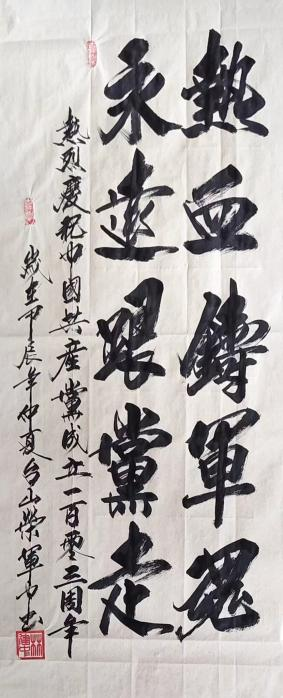 熱血鑄軍魂
永遠跟黨走
熱烈慶祝中國共產黨成立一百零三周年
歲在甲辰年仲夏台山榮軍書